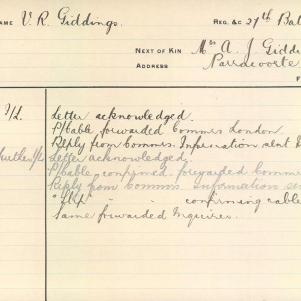 NAME V. R. Giddings. REG. &C 27th Bat
NEXT OF KIN Mrs A. J. Giddi
ADDRESS Parracoorte
F
I/L. Letter acknowledged.
P/table forwarded Commrs London
Reply from Commrs. Information sent
further I/L Letter acknowledged.
P/table confirmed. forwarded Commr
Reply from Commrs Information se
" confirming cable
Same forwarded Inquirer.